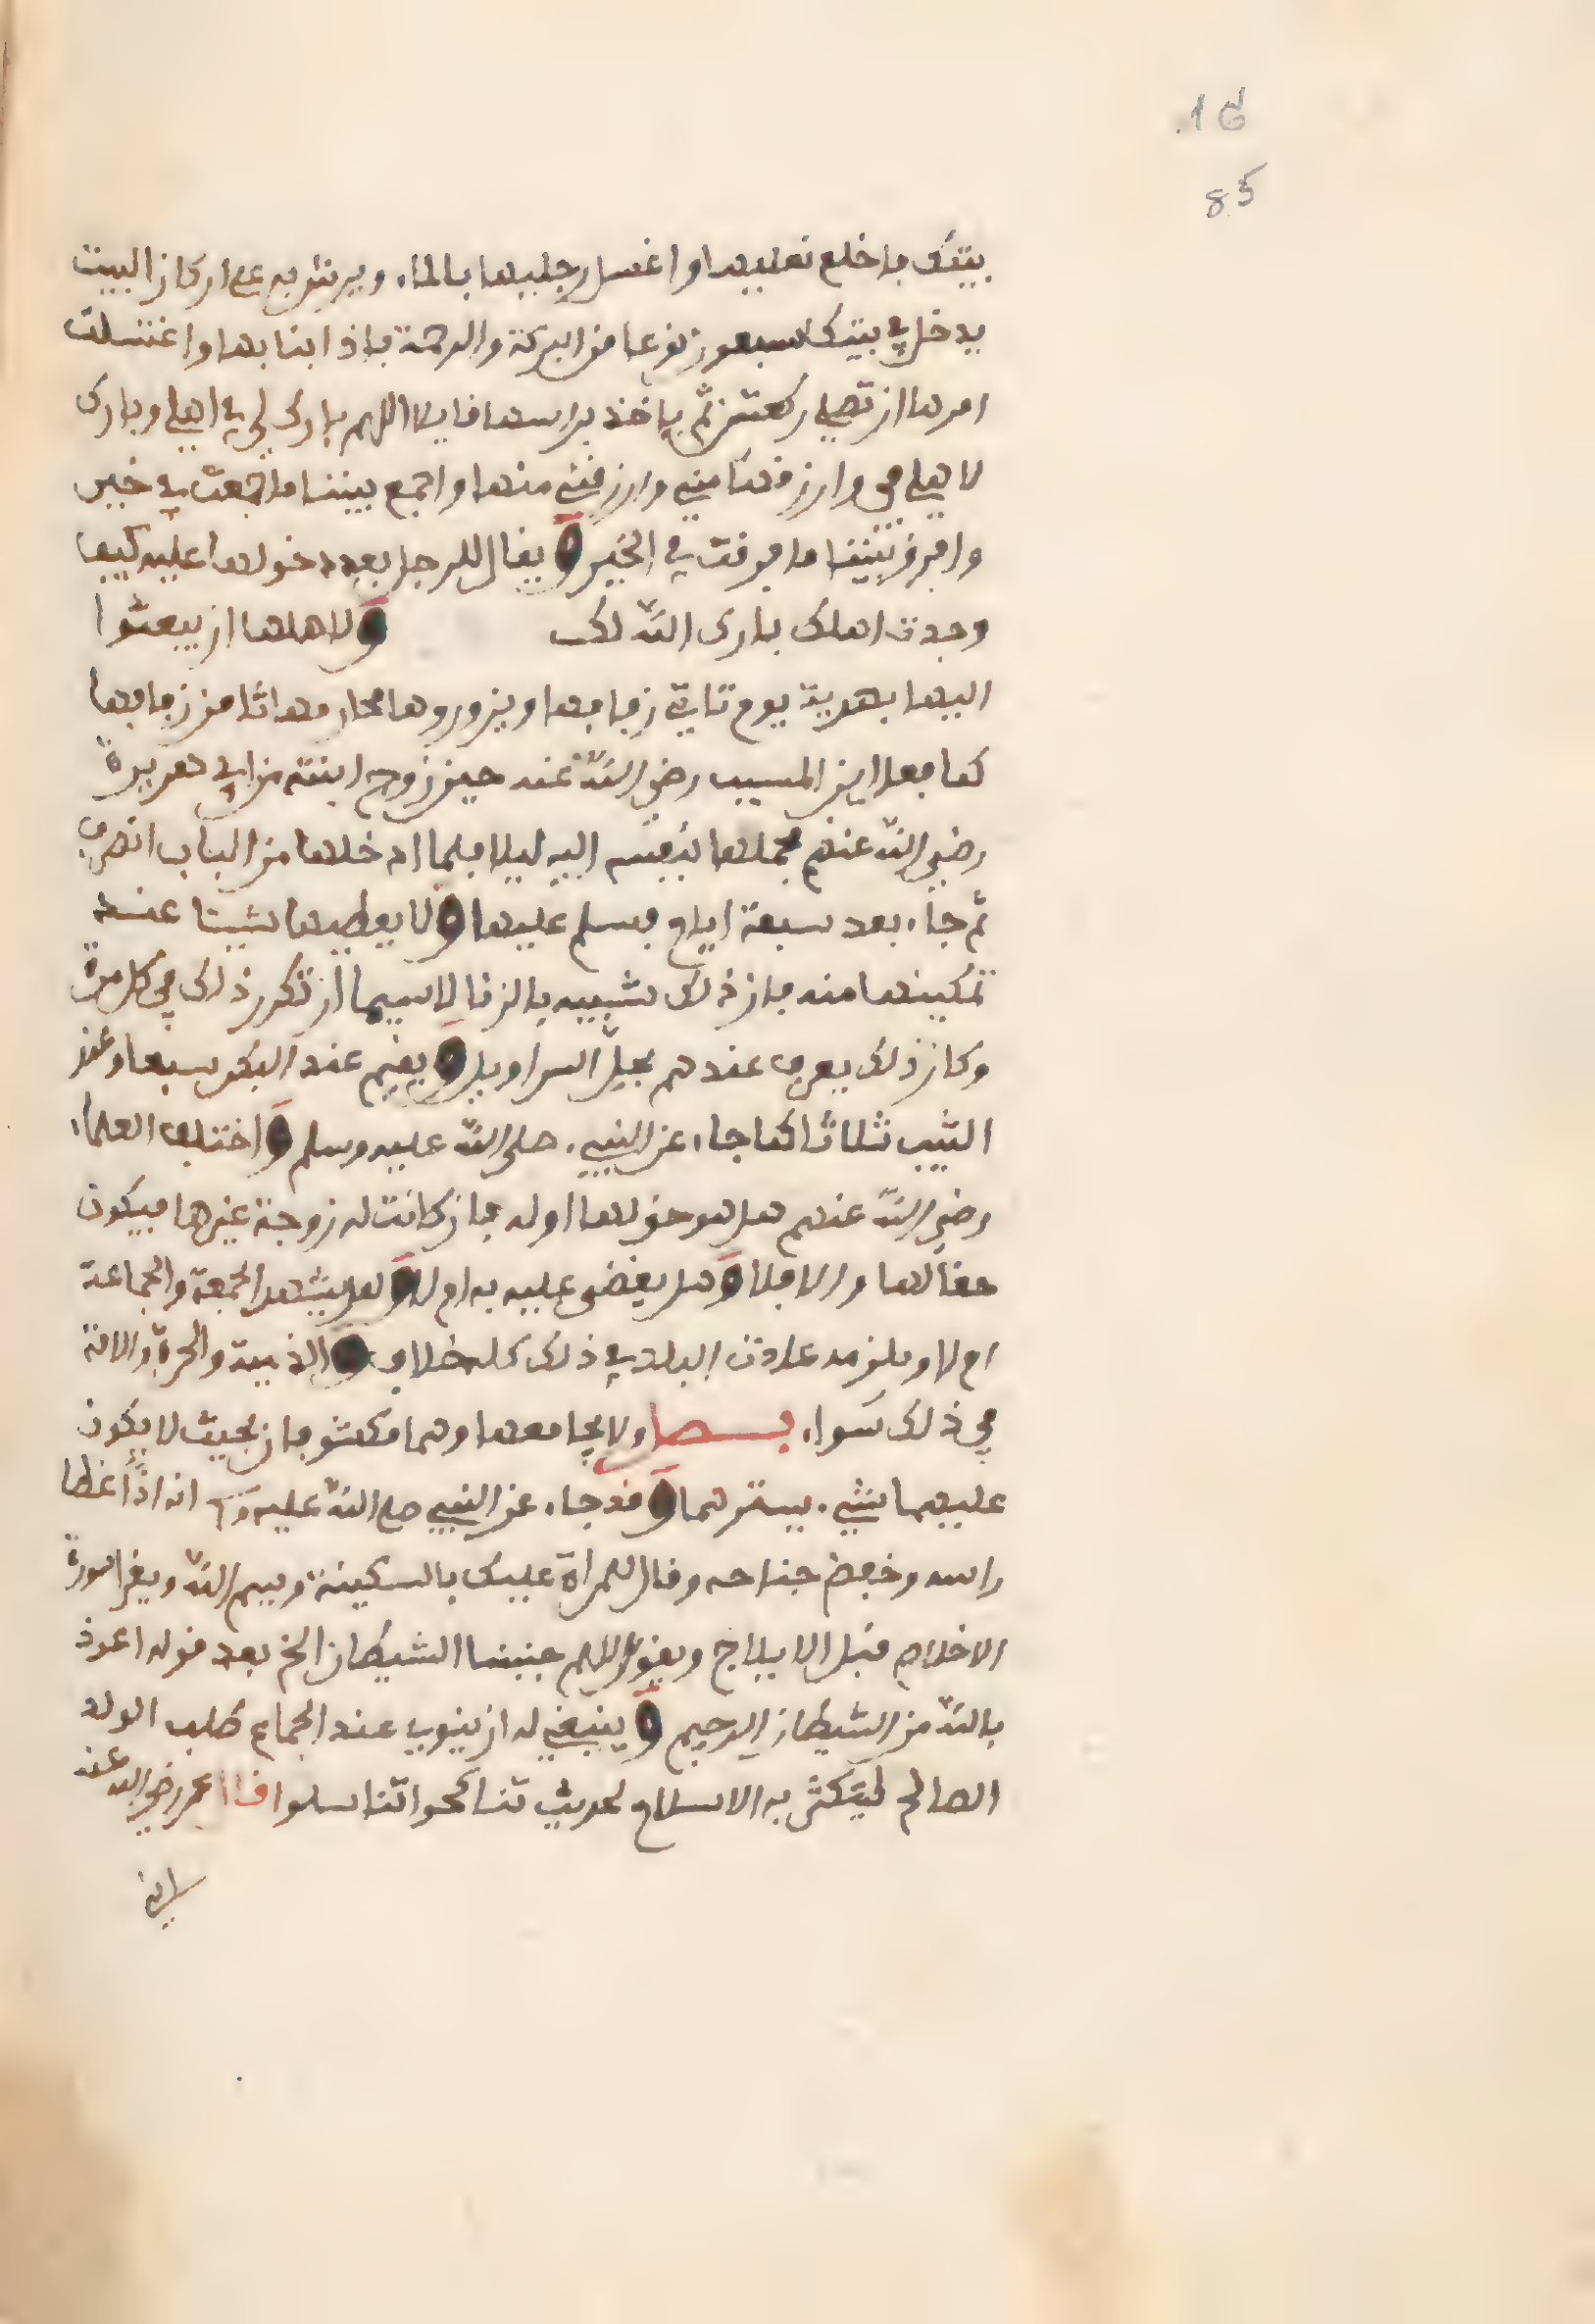 16
85
بيتك فاخلع نعليها واغسل رجليها بالماء ويرش به على اركان البيت
يدخل في بيتك سبعون نوعا من البركة والرحمة فاذا بنا بها واغتسلت
امرها ان تصلي ركعتين ثم ياخذ براسها قايلا اللهم بارك لي في اهلي وبارك
لاهلي في وارزقها مني وارزقني منها واجمع بيننا ما جمعت في خير
وافرق بيننا ما فرقت في الخير ويقال للرجل بعد دخولها عليه كيف
وجدت اهلك بارك الله لك ولاهلها ان يبعثوا
اليها بهدية يوم ثاني زفافها ويزوروها محارمها اثر من زفافها
كما فعل ابن المسيب رضي الله عنه حين زوج ابنته من ابي هريرة
رضي الله عنهم فحملها بنفسه اليه ليلا فلما ادخلها من الباب انصرف
ثم جاء بعد سبعة ايام فسلم عليها ولا يعطيها شيئا عند
تمكينها منه فان ذلك شبيه بالزنا لاسيما ان تكرر ذلك في كل مرة
وكان ذلك يعرف عندهم بحل السراويل ويقيم عند البكر سبعا وعند
الثيب ثلاثا كما جاء عن النبيء صلى الله عليه وسلم واختلف العلماء
رضي الله عنهم هل هو حق لها او له فان كانت له زوجة غيرها فيكون
حقا لها والا فلا وهل يقضى عليه به ام لا وهل يشهد الجمعة والجماعة
ام لا ويلزمه عادت البلد في ذلك كله خلاف والذمية والحرة والامة
في ذلك سواء فصل ولا يجامعها وهما مكشوفان بحيث لا يكون
عليهما شيء يسترهما وقد جاء عن النبي صلع الله عليه وسلم انه اذا غطا
راسه وخفض جناحه وقال للمراة عليك بالسكينة وبسم الله ويقرا سورة
الاخلاص قبل الايلاج ويقول اللهم جنبنا الشيطان الخ بعد قوله اعوذ
بالله من الشيطان الرجيم وينبغي له ان ينوي عند الجماع طلب الولد
الصالح ليتكثر به الاسلام لحديث تناكحوا تناسلوا قال عمر رضي الله عنه